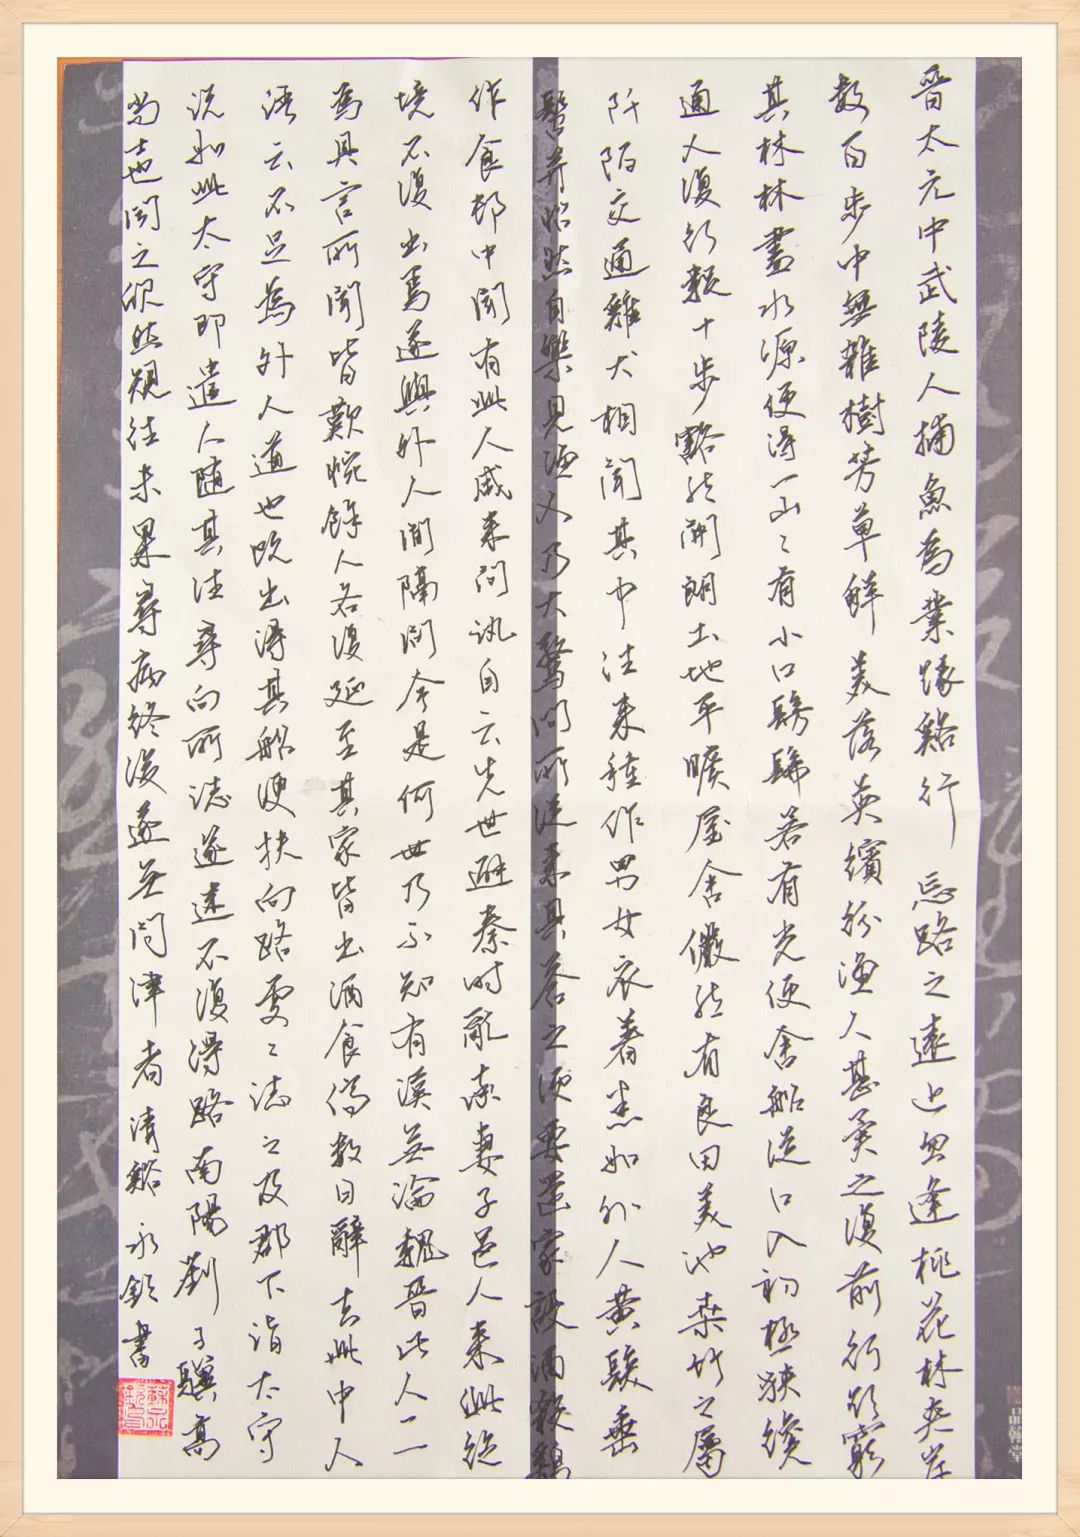 晉太元中武陵人捕魚為業緣谿行忘路之遠近忽逢桃花林夾岸
數百步中無雜樹芳草鮮美落英繽紛漁人甚異之復前行欲窮
其林林盡水源便得一山〻有小口髣髴若有光便舍船從口入初極狹纔
通人復行數十步豁然開朗土地平曠屋舍儼然有良田美池桑竹之屬
阡陌交通雞犬相聞其中往來種作男女衣著悉如外人黃髮垂
髫并怡然自樂見漁人乃大驚問所從來具答之便要還家設酒殺雞
作食邨中聞有此人咸來問訊自云先世避秦時亂率妻子邑人來此絕
境不復出焉遂與外人間隔問今是何世乃不知有漢無論魏晉此人一一
為具言所聞皆歎惋餘人各復延至其家皆出酒食停數日辭去此中人
語云不足為外人道也既出得其船便扶向路處〻誌之及郡下詣太守
說如此太守即遣人隨其往尋向所誌遂迷不復得路南陽劉子驥高
尚士也聞之欣然規往未果尋病終後遂無問津者清谿永欽書